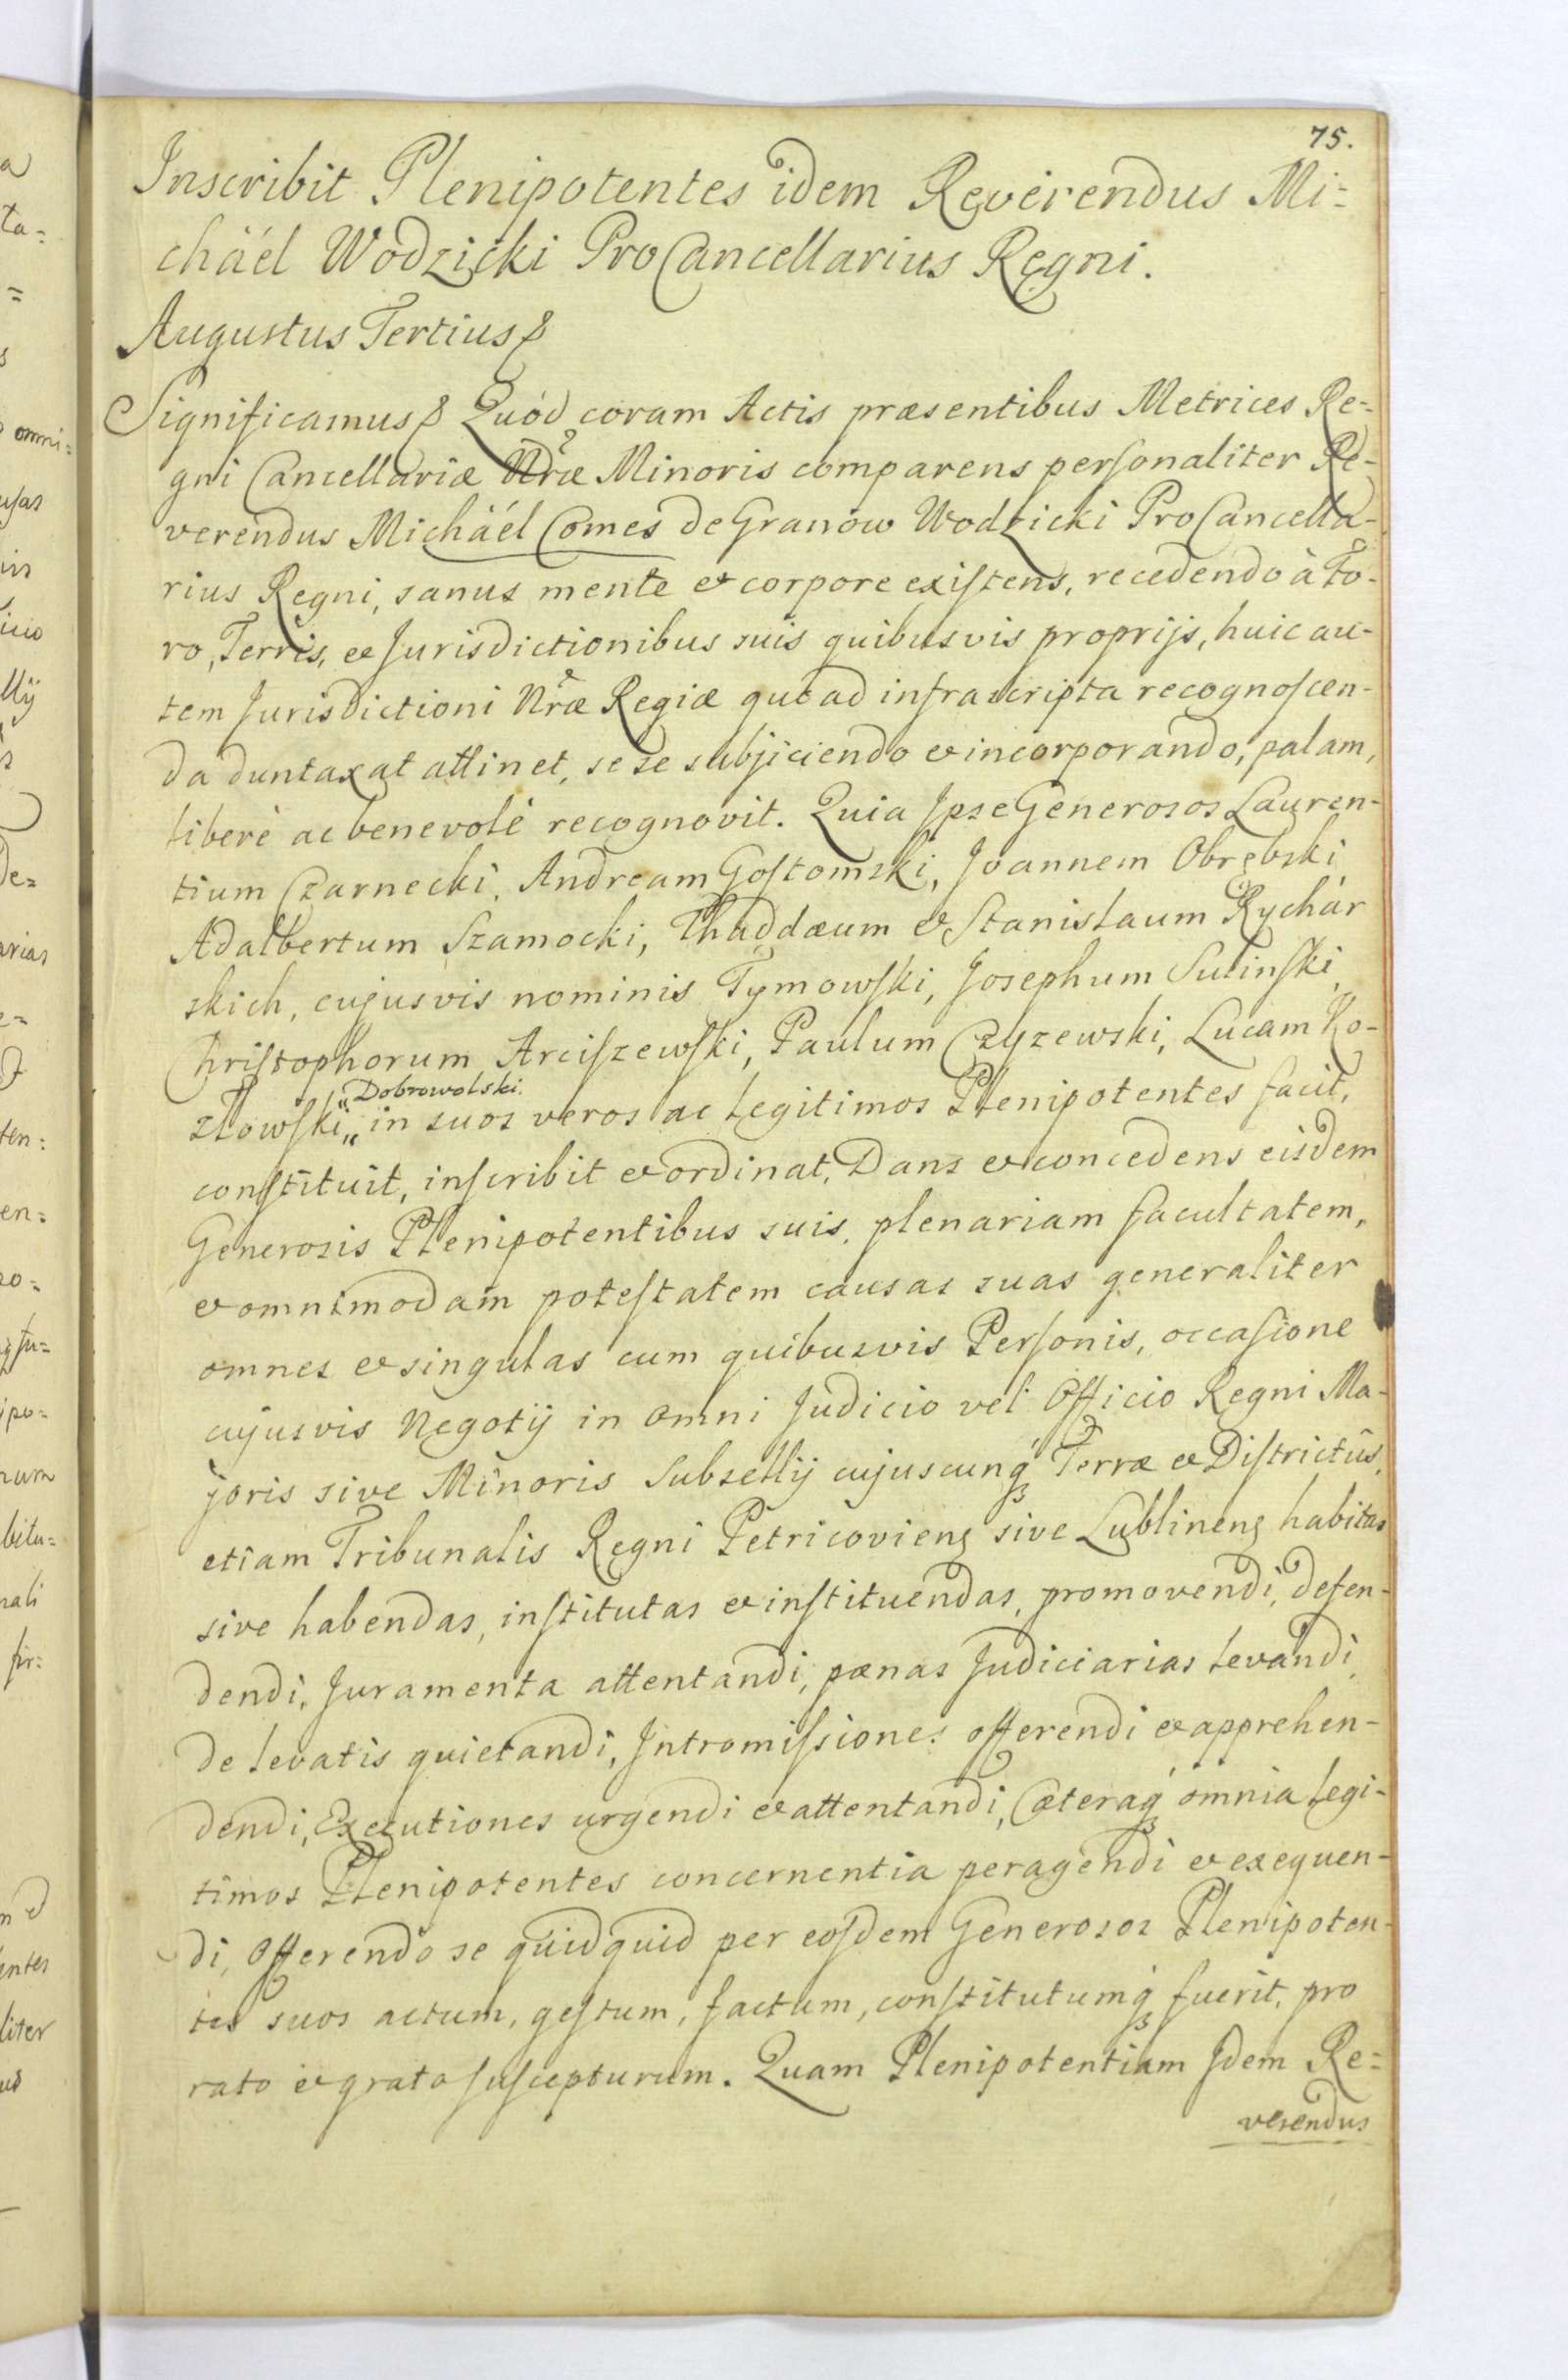 75.
Inscribit Plenipotentes idem Reverendus Mi=
cháél Wodzicki ProCancellarius Regni.
Augustus Tertius
Significamus Quód coram Actis præsentibus Metrices Re-
gni Cancellariæ Nræ Minoris comparens personaliter Re-
verendus Micháél Comes de Granów Wodzicki ProCancella-
rius Regni, sanus mente et corpore existens, recedendo à Fo-
ro, Terris, et Jurisdictionibus suis quibusvis proprijs, huic au-
tem Jurisdictioni Nræ Regiæ quo ad infrascripta recognoscen-
da duntaxat attinet, se se subjiciendo et incorporando, palam,
liberè ac benevolè recognovit. Quia Ipse Generosos Lauren-
tium Czarnecki, Andream Gostomski, Joannem Obrębski,
Adalbertum Szamocki, Thaddæum et Stanislaum Rychár
skich, cujusvis nominis Tymowski, Josephum Sulinski,
Christophorum Arciszewski, Paulum Czyzewski, Lucam Ko-
" Dobrowolski.
złowski „ in suos veros ac legitimos Plenipotentes facit,
constituit, inscribit et ordinat, Dans et concedens eisdem
Generosis Plenipotentibus suis, plenariam facultatem,
et omnimodam potestatem causas suas generaliter
omnes et singulas cum quibusvis Personis, occasione
cujusvis Negotij in omni Judicio vel Officio Regni Ma-
joris sive Minoris Subsellij cujuscunq́ Terræ et Districtûs,
etiam Tribunalis Regni Petricoviens sive Lublinens habitas
sive habendas, institutas et instituendas, promovendi, defen-
dendi, Juramenta attentandi, pænas Judiciarias levandi,
de levatis quietandi, Intromissiones offerendi et apprehen-
dendi, Executiones urgendi et attentandi, Cæteraq́ omnia legi-
timos Plenipotentes concernentia peragendi et exequen-
di, Offerendo se quidquid per eosdem Generosos Plenipoten-
tes suos actum, gestum, factum, constitutumq́ fuerit, pro
rato et grato suscepturum. Quam Plenipotentiam Idem Re=
verendus